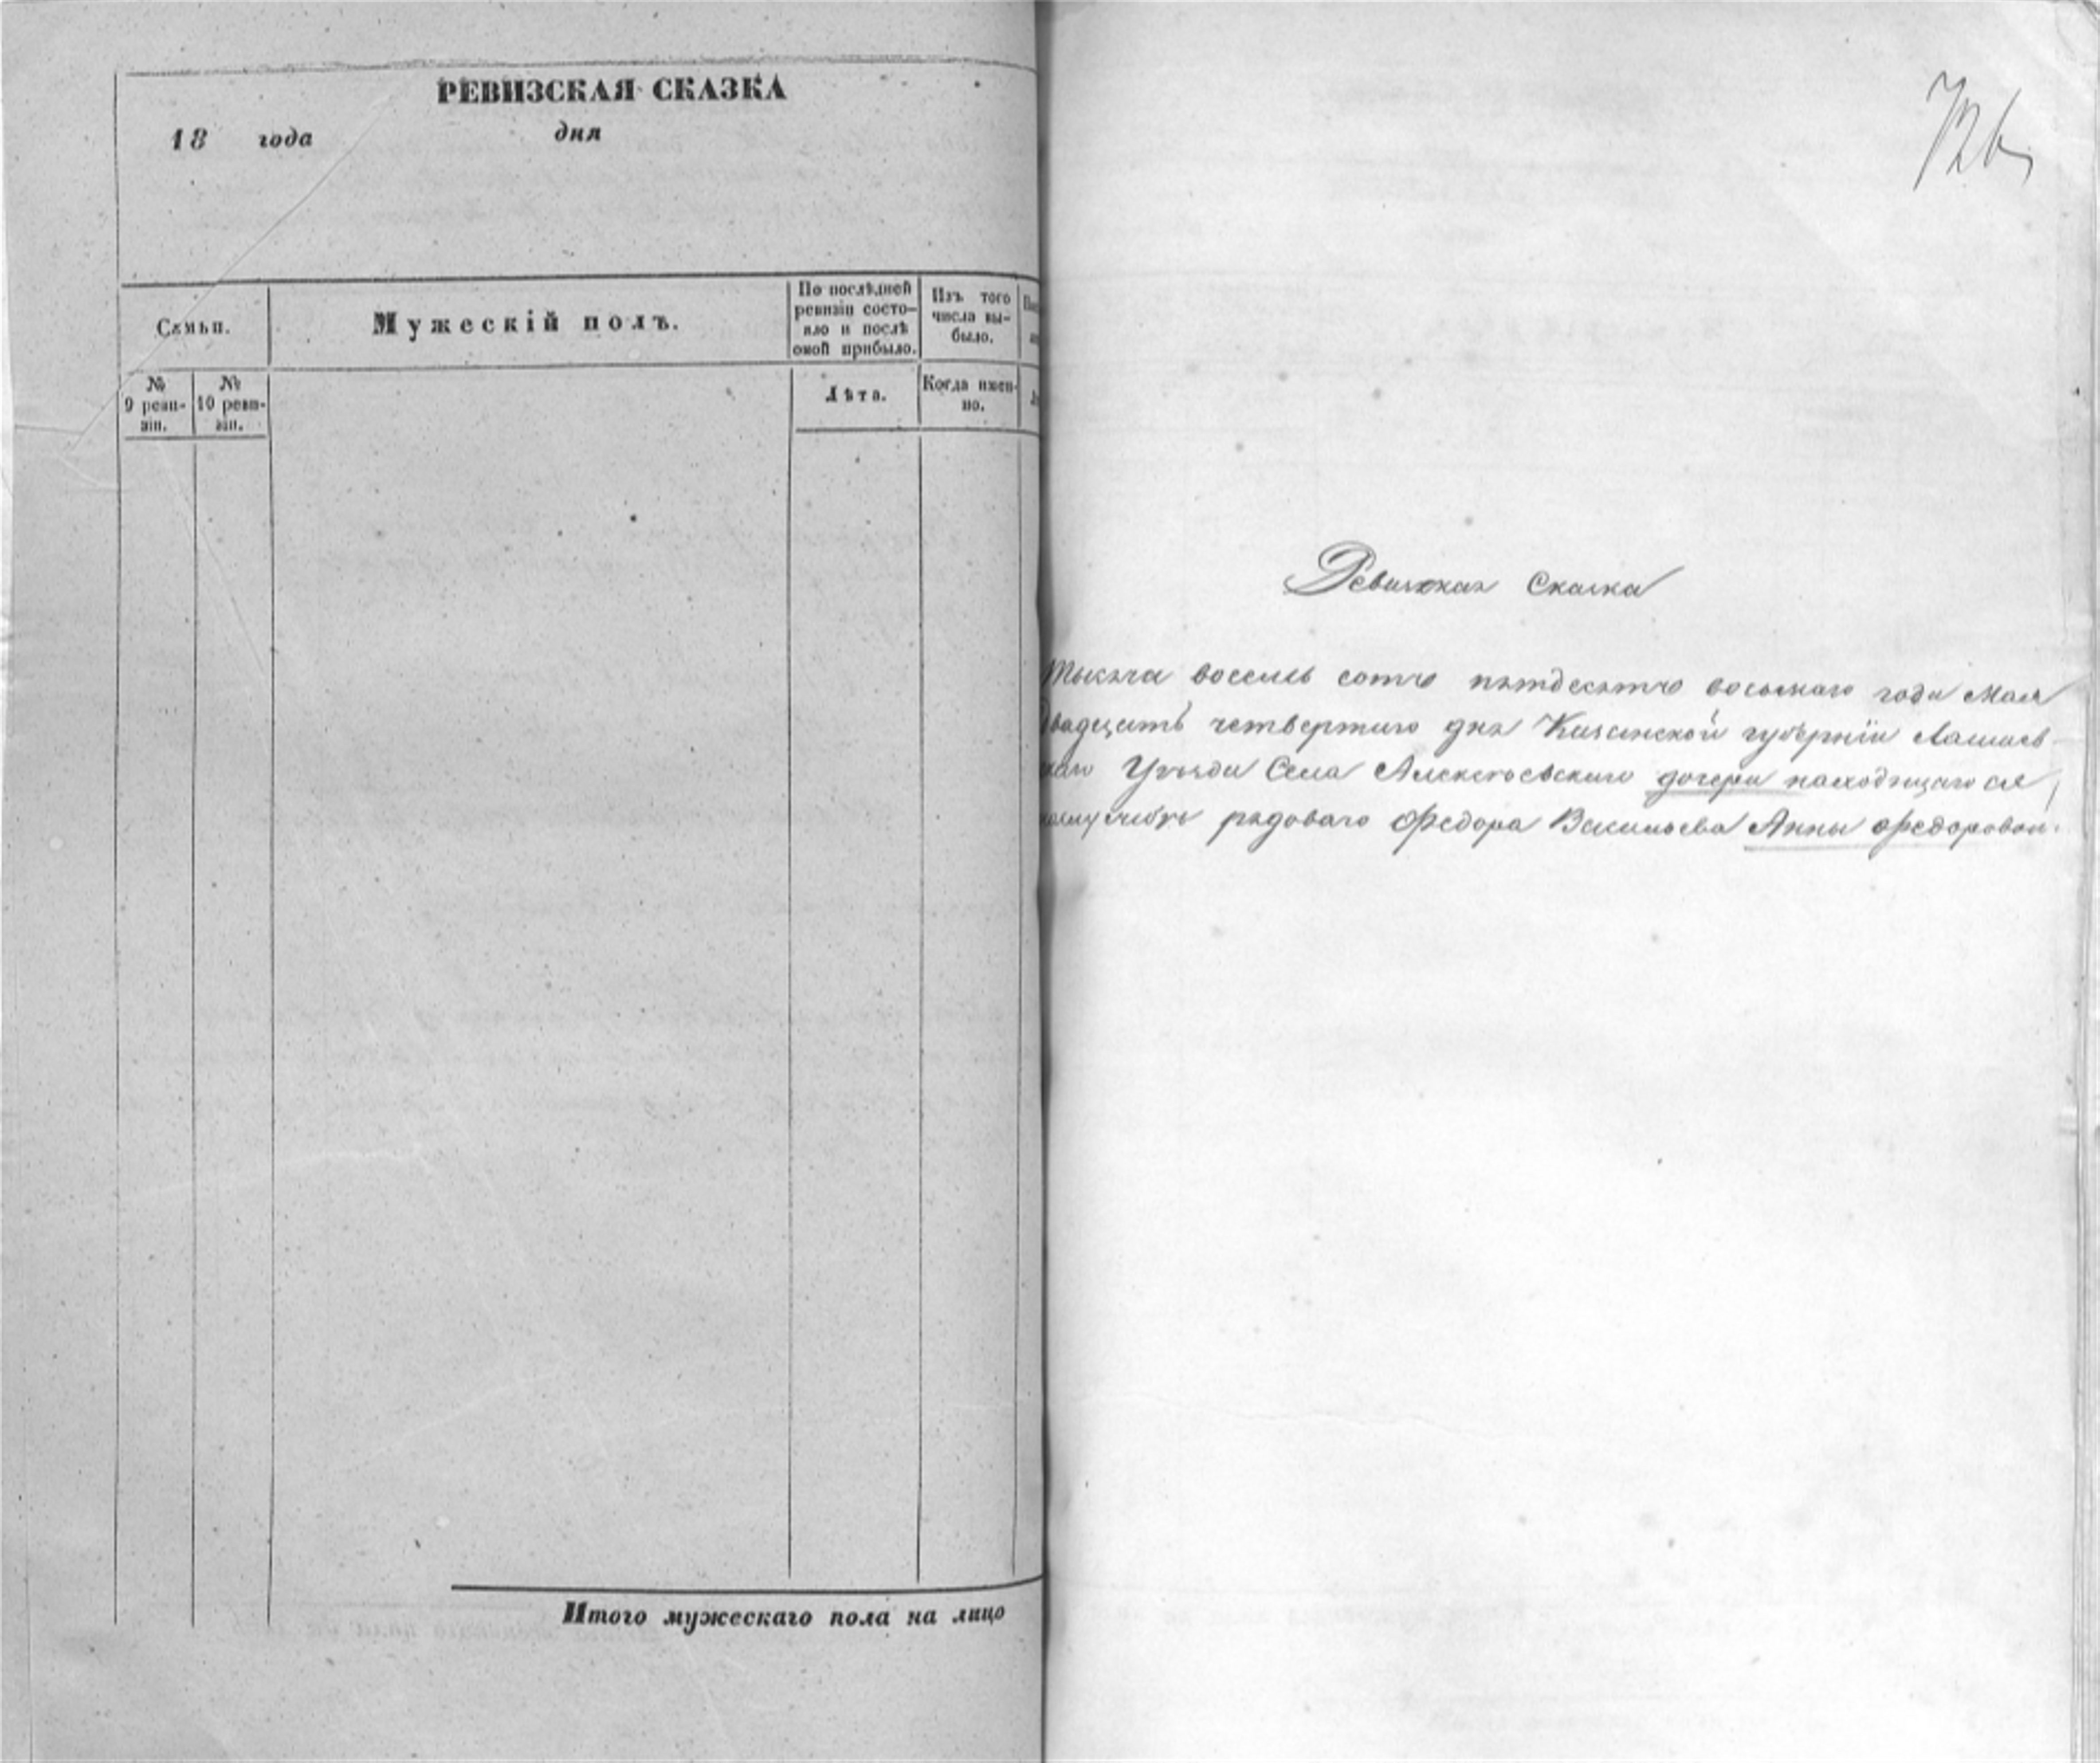 РЕВИЗСКАЯ СКАЗКА
18 года дня
Семьи.
Мужескій полъ.
По послѣдней ревизіи состо-
яло и послѣ оной прибыло.
Изъ того числа вы-
было.
№ 9 реви-
зіи.
№ 10 реви-
зіи.
Лѣта.
Когда имен-
но.
Итого мужескаго пола на лицо
726
Ревизская Сказка
Тысяча восемь сотъ пятдесятъ восьмаго года Мая
двадцать четвертаго дня Казанской губерніи Лаишев-
скаго Уѣзда Села Алексѣевскаго дочери находящагося
рядоваго Федора Васильева Анны Федоровой.